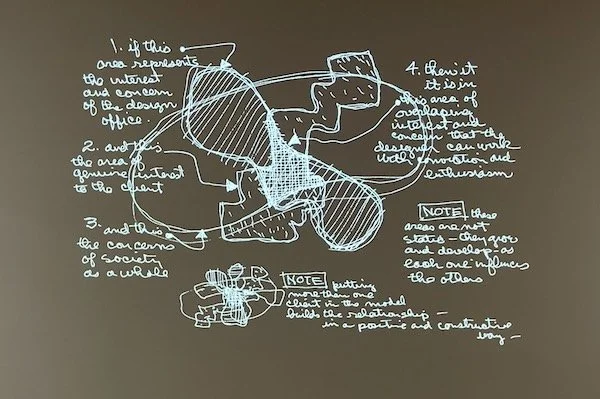 1. if this
area represents
the interest
and concern
of the design
office.
2. and this
the area of
genuine interest
to the client
3. and this
the concerns
of society
as a whole
4. then it
it is in
this area of
overlaping
interest and
concern that the
designer can work
with conviction and
enthusiasm
NOTE these
areas are not
static - they grow
and develop - as
each one influences
the others
NOTE putting
more than one
client in the model
builds the relationship -
in a positive and constructive
way -